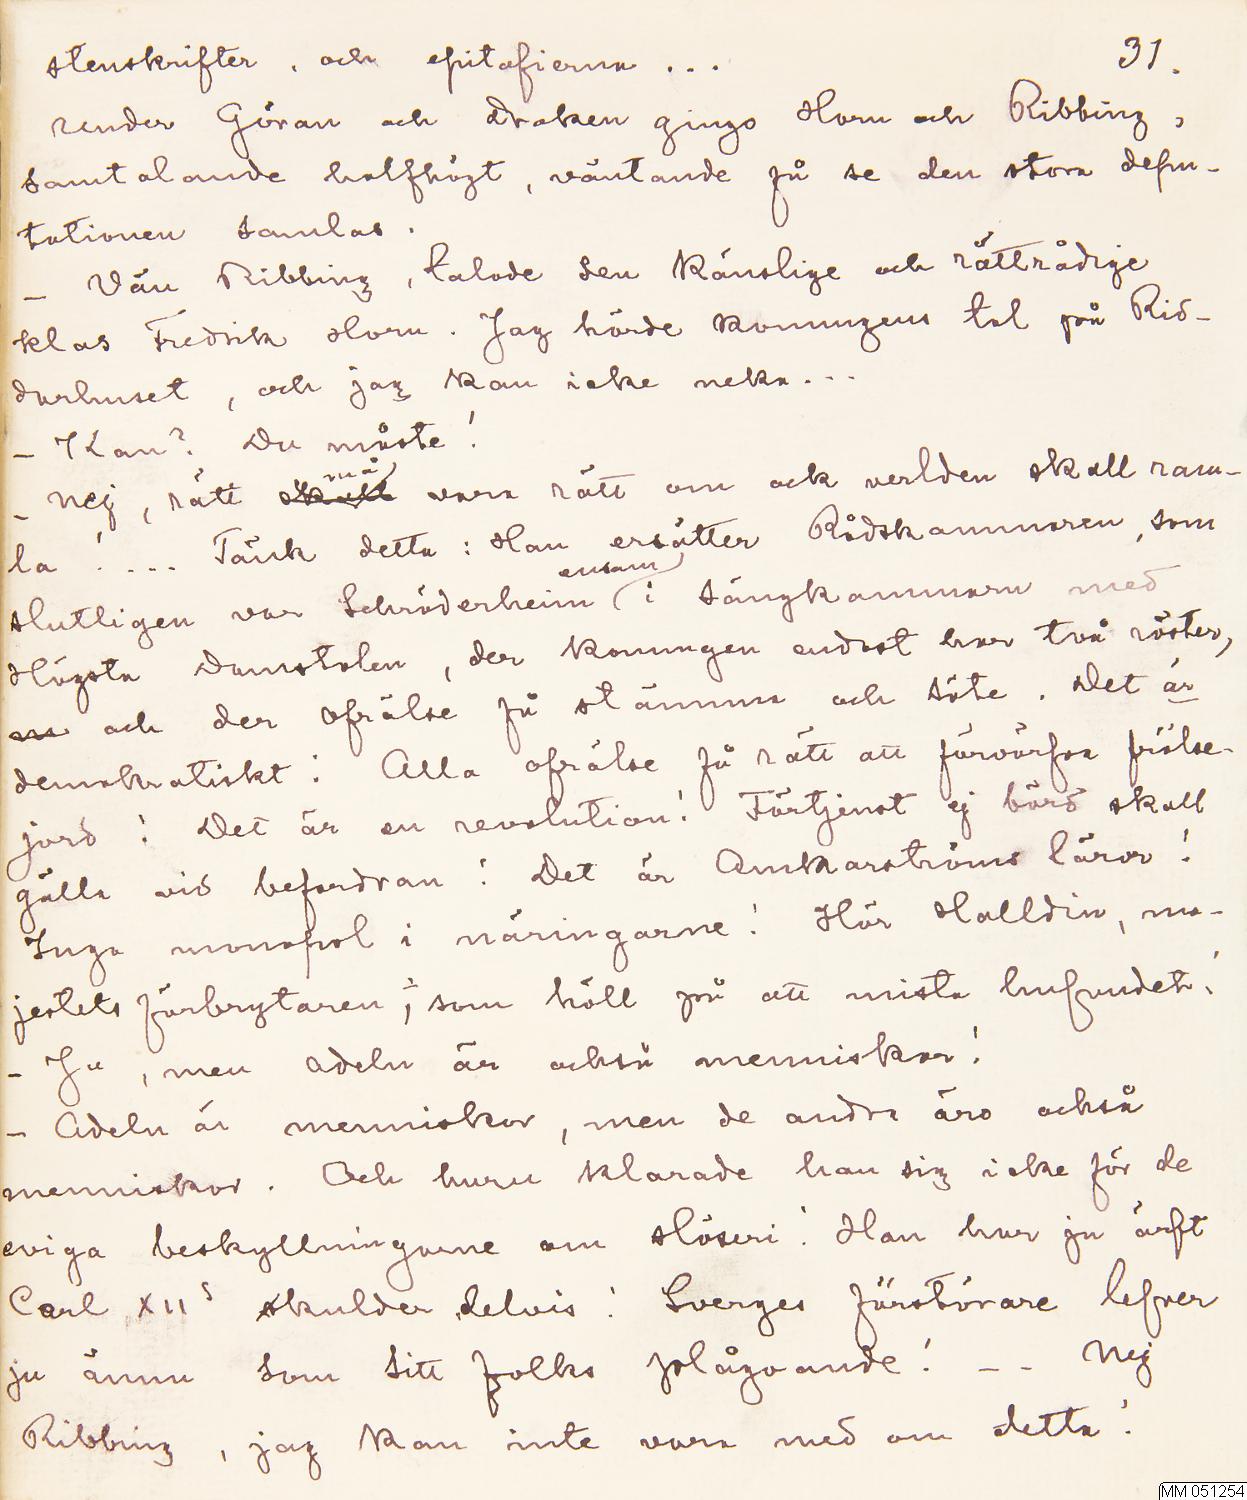 31.
stenskrifter, och epitafierna ...
under Göran och Draken gingo Horn och Ribbing,
samtalande halfhögt, väntande på se den stora depu-
tationen samlas.
– Vän Ribbing, talade den känslige och rättrådige
Klas Fredrik Horn. Jag hörde konungens tal på Rid-
darhuset, och jag kan icke neka...
– Kan? Du måste!
må
– Nej, rätt skall vara rätt om ock verlden skall ram-
la! .... Tänk detta: Han ersätter Rådskammaren, som
ensam
slutligen var Schröderheim i sängkammarn med
Högsta Domstolen, der konungen endast har två röster,
och der ofrälse få stämma och säte. Det är
demokratiskt! Alla ofrälse få rätt att förvärfva frälse-
jord! Det är en revolution! Förtjenst ej börd skall
gälla vid befordran! Det är Anckarströms läror!
Inga monopol i näringarne! Hör Halldin, ma-
jestets förbrytaren, som höll på att mista hufvudet!
– Ja, men adeln är också menniskor!
– Adeln är menniskor, men de andra äro också
menniskor. Och huru klarade han sig icke för de
eviga beskyllningarne om slöseri! Han har ju ärft
Carl XII's skulder delvis! Sverges förstörare lefver
ju ännu som sitt folks plågoande! – – Nej
Ribbing, jag kan inte vara med om detta!
MM 051254